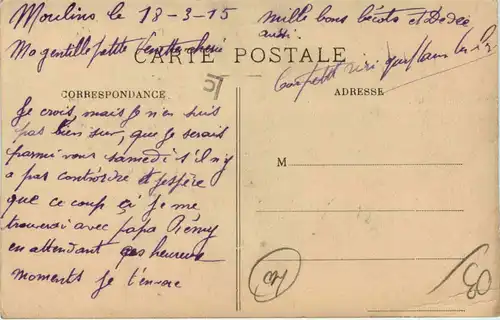 Moulins le 18-3-15
Ma gentille petite chérie
mille bons bécots et Dédée
aussi.
CARTE POSTALE
CORRESPONDANCE
ADRESSE
Je crois, mais je n'en suis
pas bien sur, que je serais
parmi vous samedi s'il n'y
a pas contrordre et j'espère
que ce coup ci je me
trouverai avec papa Rémy
en attendant ces heureux
moments je t'envoie
M